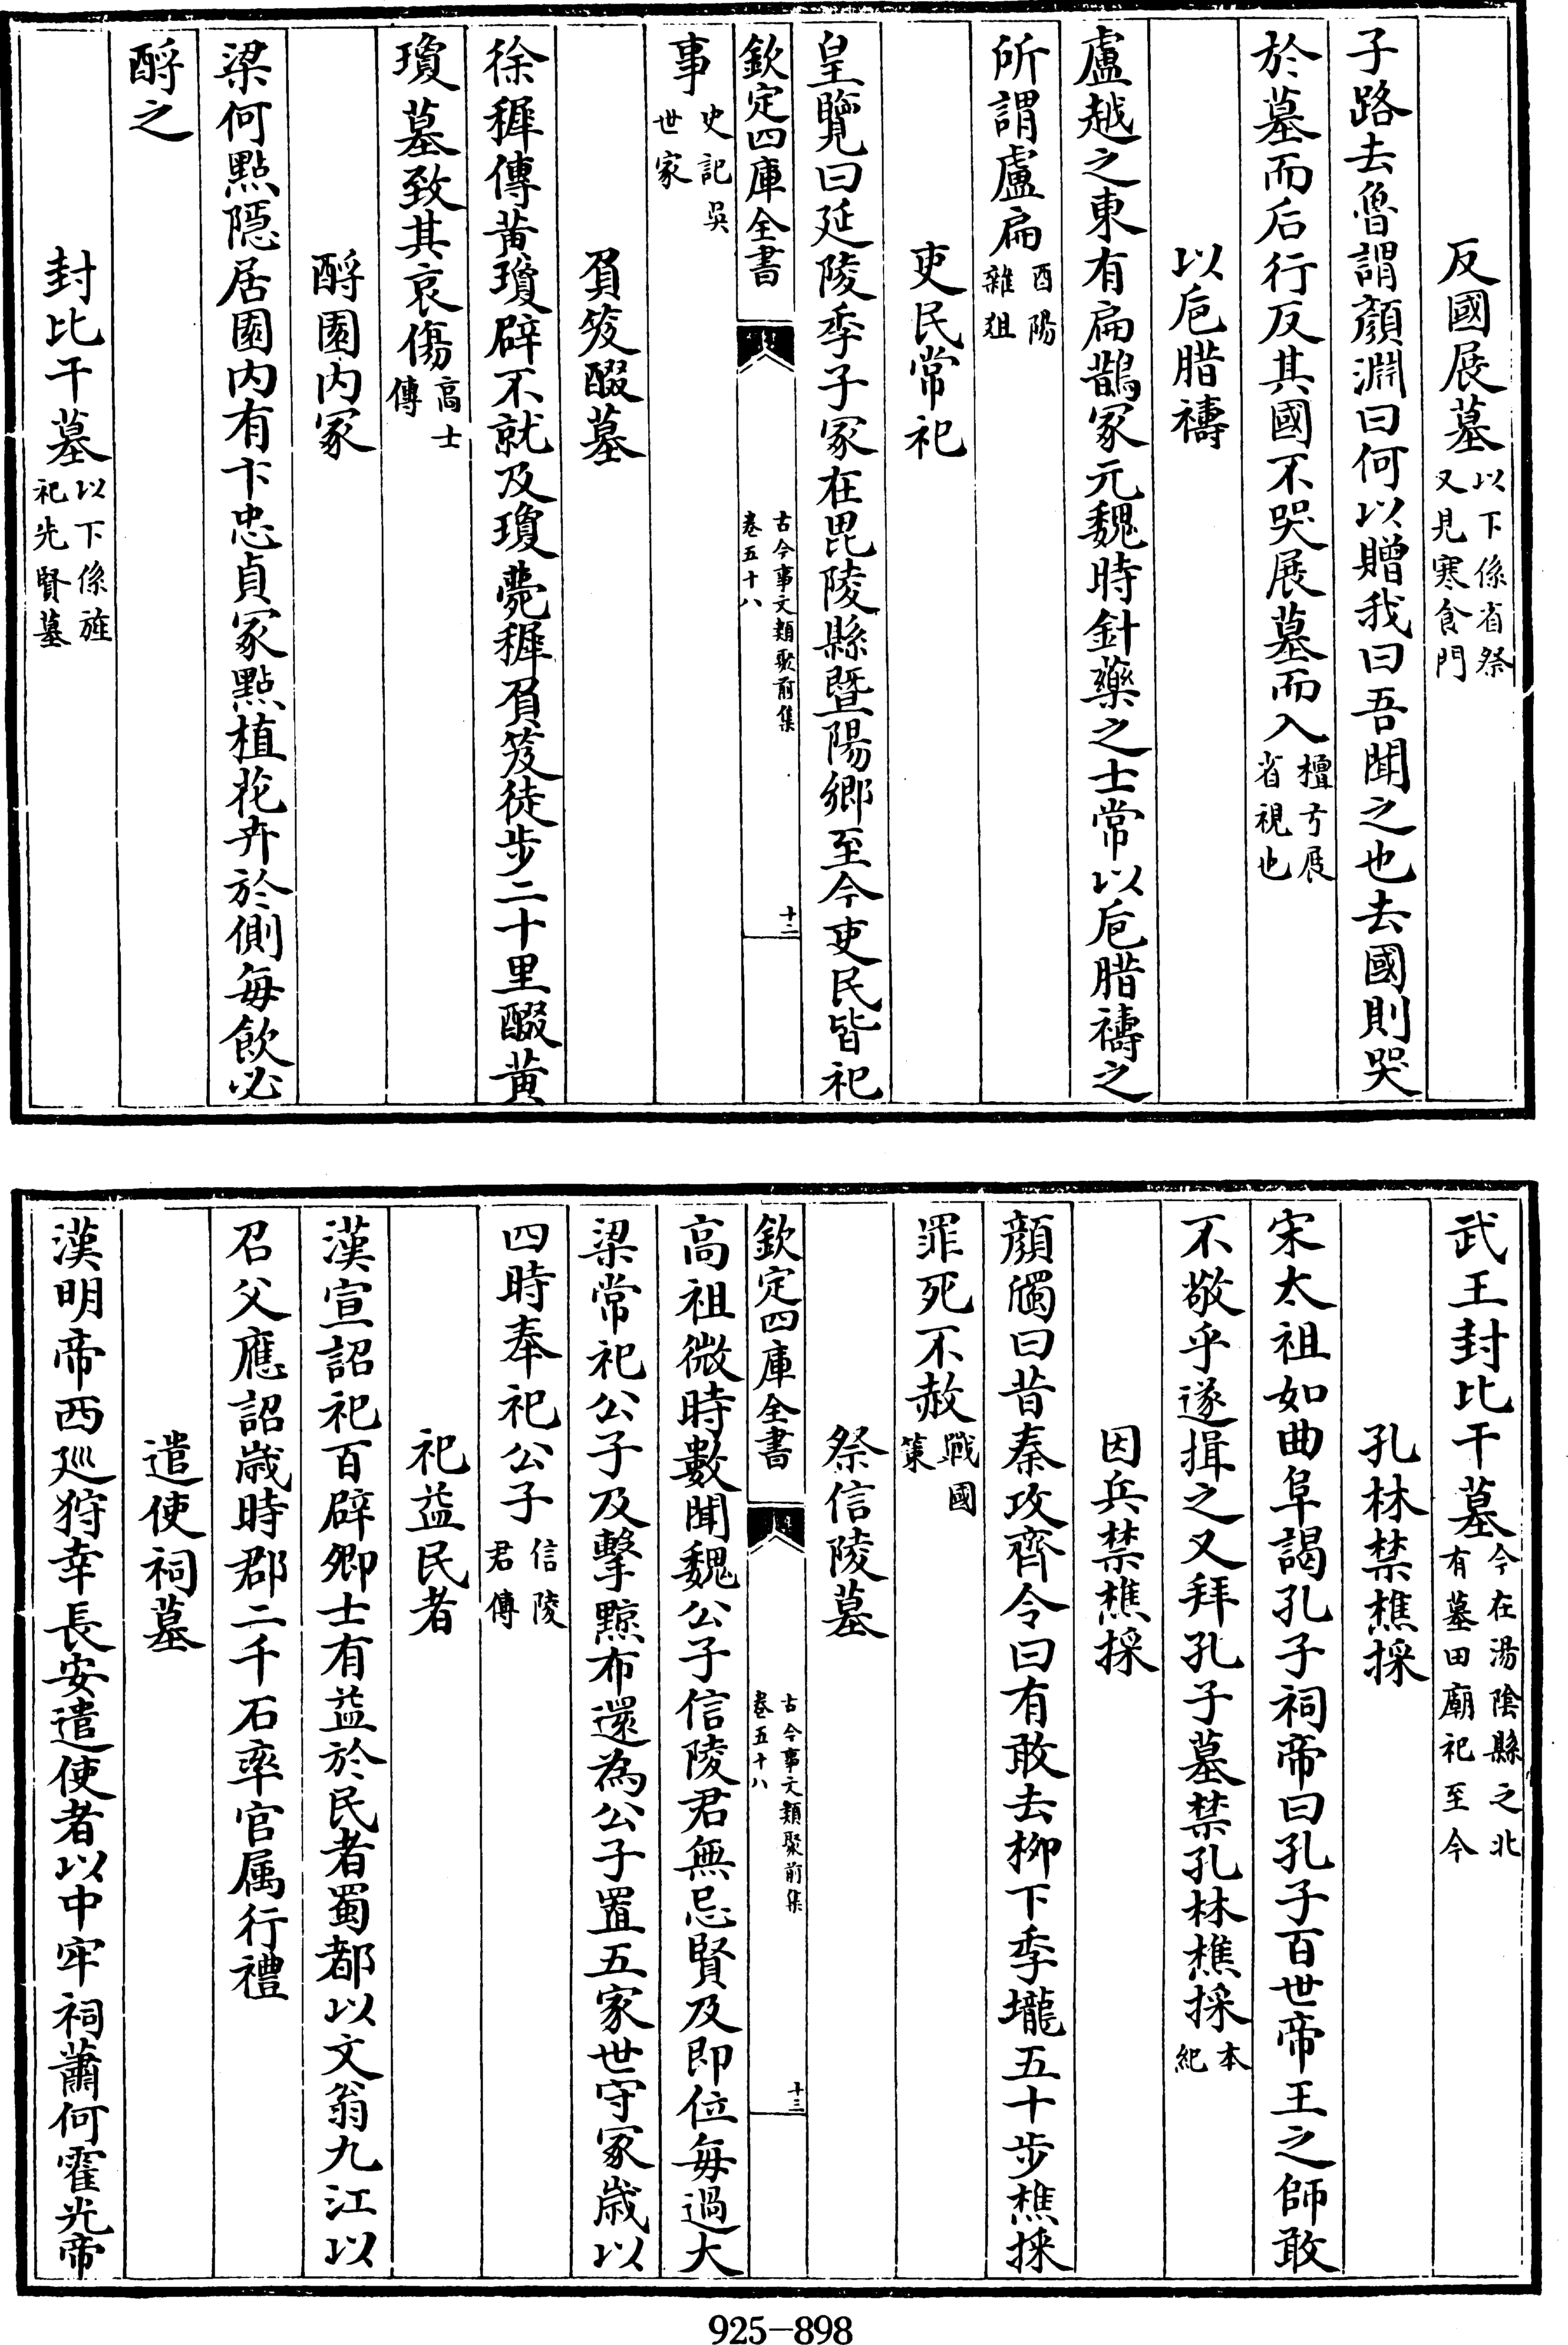 反國展墓以下係省祭又見寒食門
子路去魯謂顏淵曰何以贈我曰吾聞之也去國則哭
於墓而后行反其國不哭展墓而入檀弓展省視也
以卮腊禱
盧越之東有扁鵲冢元魏時針藥之士常以卮腊禱之
所謂盧扁酉陽雜俎
吏民常祀
皇覽曰延陵季子冢在毘陵縣暨陽鄉至今吏民皆祀
欽定四庫全書 古今事文類聚前集卷五十八 十二
事史記吳世家
負笈醊墓
徐穉傳黃瓊辟不就及瓊薨穉負笈徒步二十里醊黃
瓊墓致其哀傷高士傳
酹園内冢
梁何點隱居園内有卞忠貞冢點植花卉於側每飲必
酹之
封比干墓以下係旌祀先賢墓
武王封比干墓今在湯陰縣之北有墓田廟祀至今
孔林禁樵採
宋太祖如曲阜謁孔子祠帝曰孔子百世帝王之師敢
不敬乎遂揖之又拜孔子墓禁孔林樵採本紀
因兵禁樵採
顏斶曰昔秦攻齊令曰有敢去柳下季壠五十步樵採
罪死不赦戰國策
祭信陵墓
欽定四庫全書 古今事文類聚前集卷五十八 十三
高祖微時數聞魏公子信陵君無忌賢及即位每過大
梁常祀公子及擊黥布還為公子置五家世守冢歲以
四時奉祀公子信陵君傳
祀益民者
漢宣詔祀百辟卿士有益於民者蜀都以文翁九江以
召父應詔歲時郡二千石率官属行禮
遣使祠墓
漢明帝西廵狩幸長安遣使者以中牢祠蕭何霍光帝
925-898